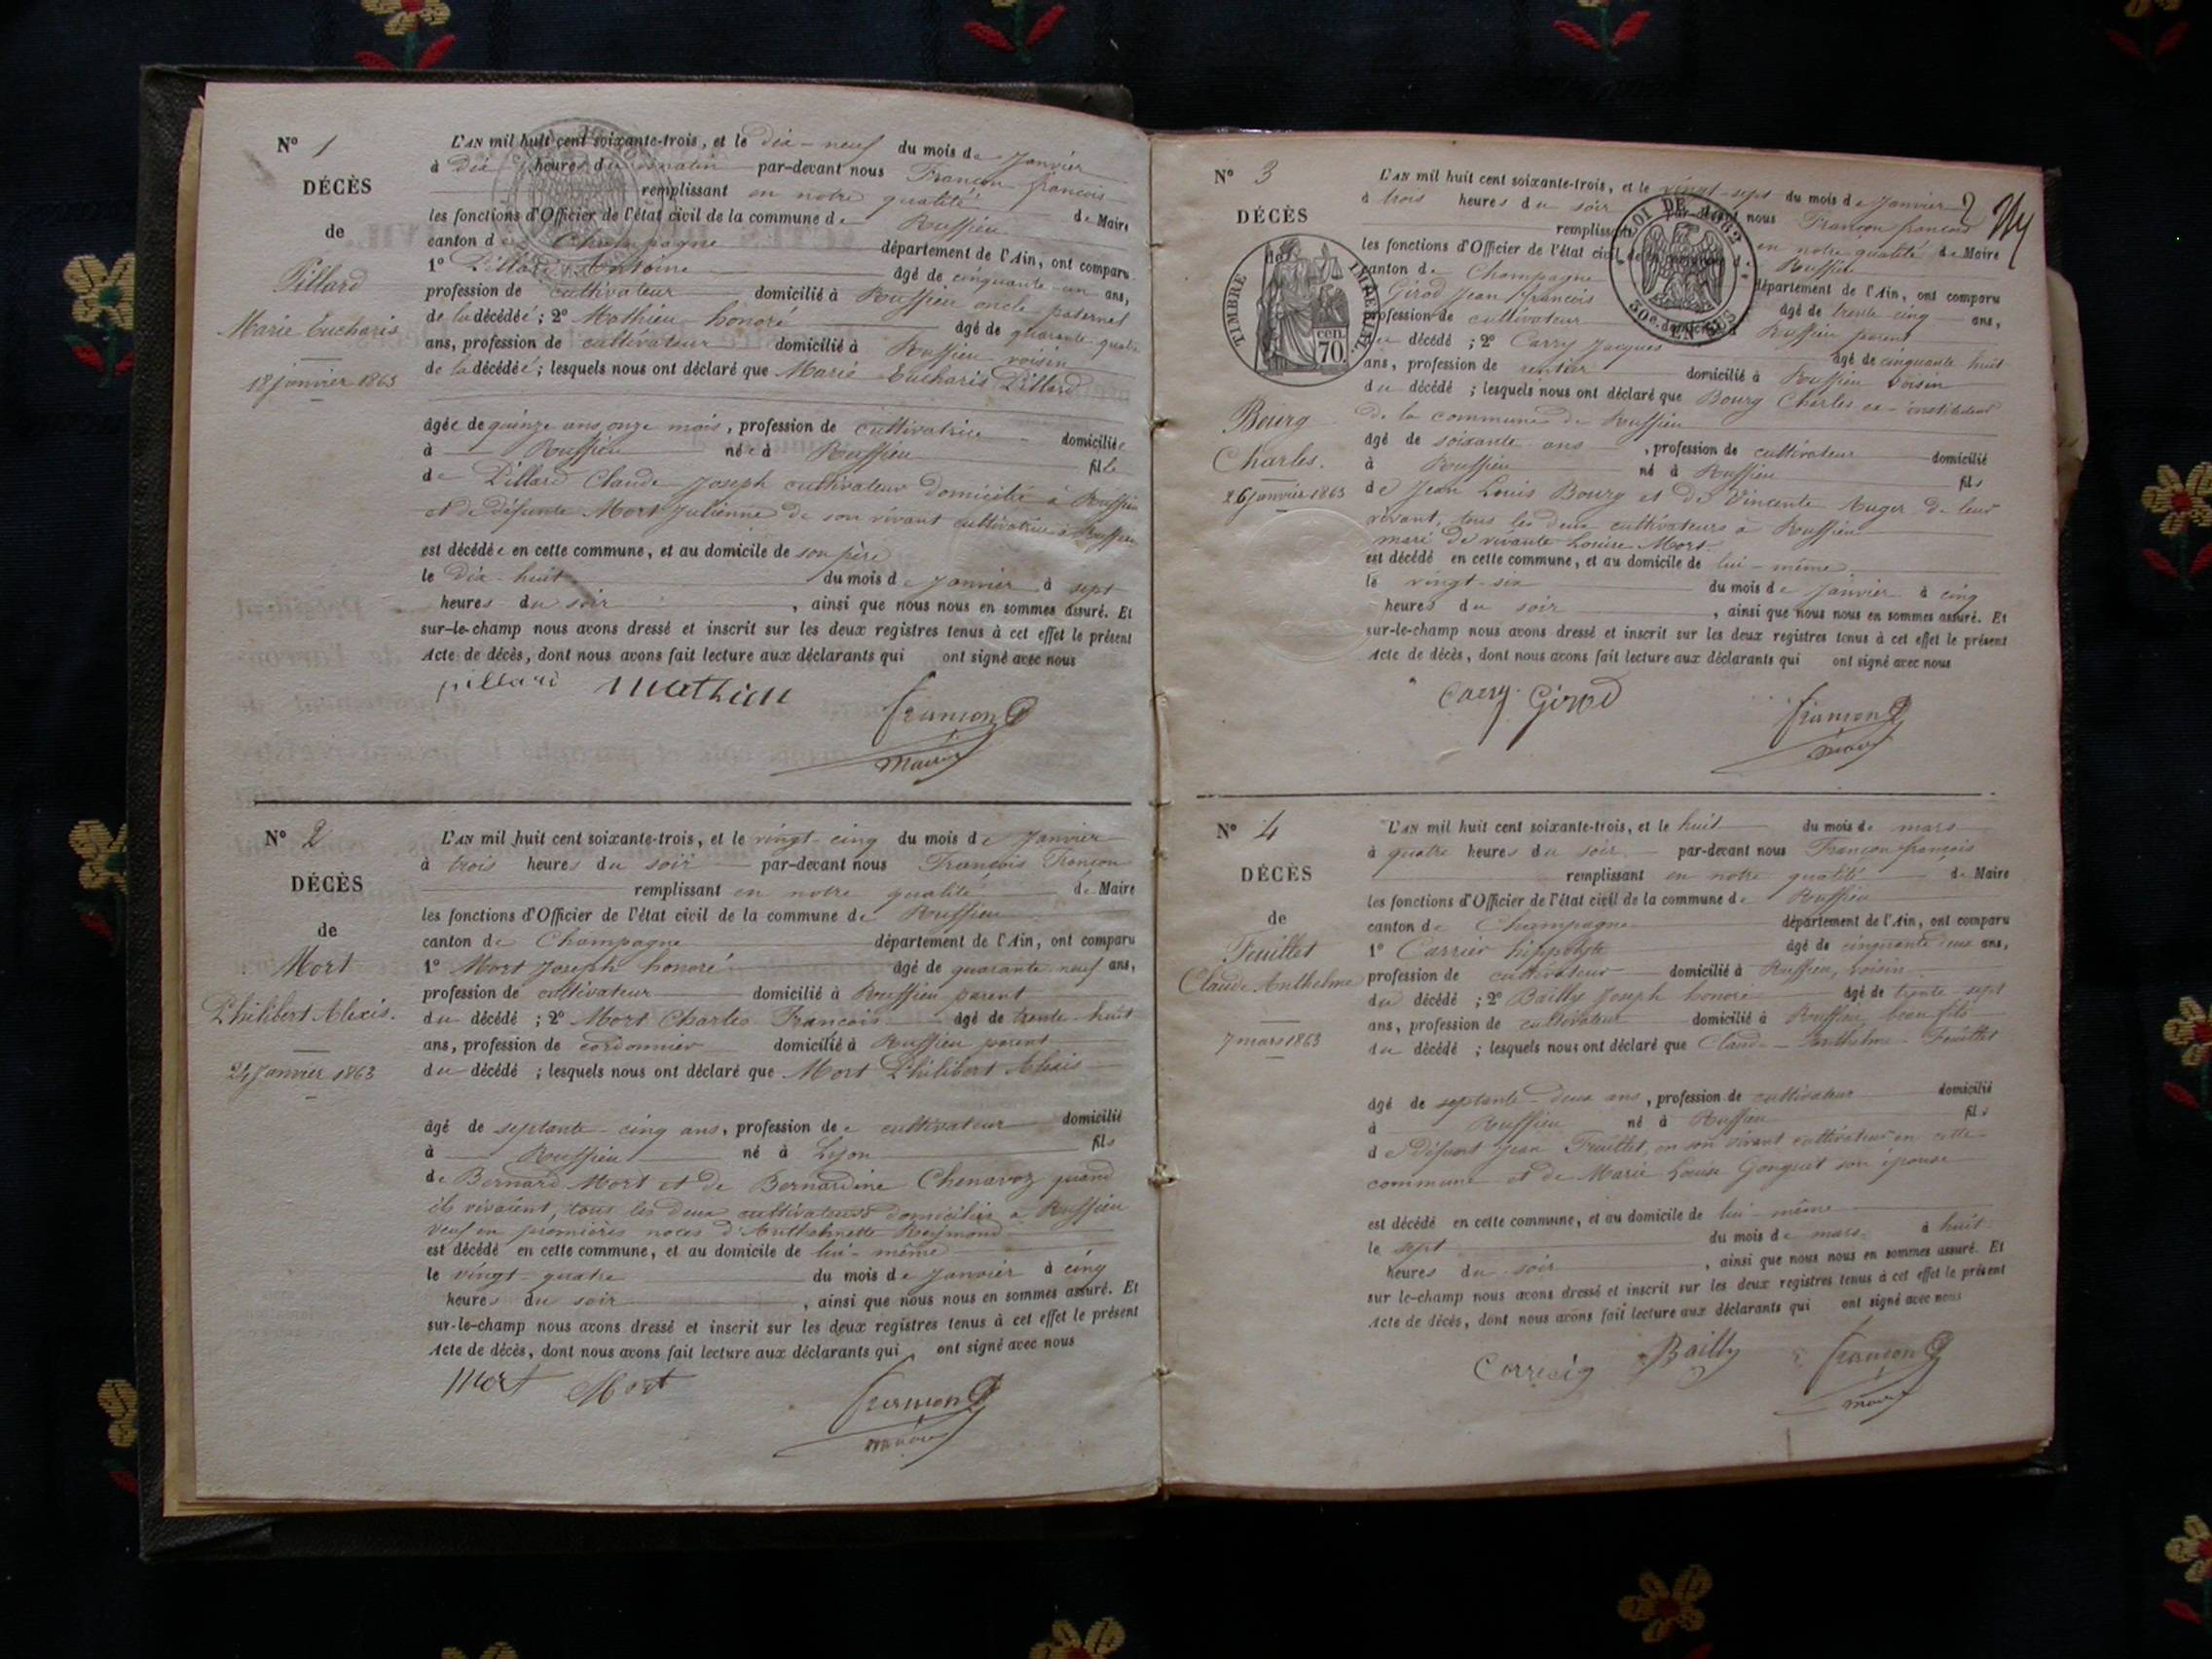 N° 1
DÉCÈS
de
Pillard
Marie Eucharis
18 janvier 1863
L'AN mil huit cent soixante-trois, et le dix-neuf du mois de Janvier
à dix heures du matin par-devant nous Françon françois
remplissant en notre qualité de Maire
les fonctions d'Officier de l'état civil de la commune de Ruffieu
canton de Champagne département de l'Ain, ont comparu
1° Pillard Antoine âgé de cinquante-un ans,
profession de cultivateur domicilié à Ruffieu oncle paternel
de la décédée; 2° Mathieu honoré âgé de quarante-quatre
ans, profession de cultivateur domicilié à Ruffieu voisin
de la décédée; lesquels nous ont déclaré que Marie Eucharis Pillard
âgée de quinze ans onze mois, profession de cultivatrice domiciliée
à Ruffieu née à Ruffieu fille
de Pillard Claude Joseph cultivateur domicilié à Ruffieu
et de défunte Mort Julienne de son vivant cultivatrice à Ruffieu
est décédée en cette commune, et au domicile de son père
le dix-huit du mois de Janvier à sept
heures du soir, ainsi que nous nous en sommes assuré. Et
sur-le-champ nous avons dressé et inscrit sur les deux registres tenus à cet effet le présent
Acte de décès, dont nous avons fait lecture aux déclarants qui ont signé avec nous
pillard Mathieu françon
maire
N° 2
DÉCÈS
de
Mort
Philibert Alexis.
24 Janvier 1863
L'AN mil huit cent soixante-trois, et le vingt-cinq du mois de Janvier
à trois heures du soir par-devant nous François Françon
remplissant en notre qualité de Maire
les fonctions d'Officier de l'état civil de la commune de Ruffieu
canton de Champagne département de l'Ain, ont comparu
1° Mort Joseph honoré âgé de quarante-neuf ans,
profession de cultivateur domicilié à Ruffieu parent
du décédé; 2° Mort Charles François âgé de trente-huit
ans, profession de cordonnier domicilié à Ruffieu parent
du décédé; lesquels nous ont déclaré que Mort Philibert Alexis
âgé de septante-cinq ans, profession de cultivateur domicilié
à Ruffieu né à Lyon fils
de Bernard Mort et de Bernardine Chenavoz quand
ils vivaient, tous les deux cultivateurs domiciliés à Ruffieu
veuf en premières noces d'Anthelmette Reymond
est décédé en cette commune, et au domicile de lui-même
le vingt-quatre du mois de Janvier à cinq
heures du soir, ainsi que nous nous en sommes assuré. Et
sur-le-champ nous avons dressé et inscrit sur les deux registres tenus à cet effet le présent
Acte de décès, dont nous avons fait lecture aux déclarants qui ont signé avec nous
Mort Mort françon
maire
N° 3
DÉCÈS
de
TIMBRE IMPÉRIAL
70 cen.
Bourg
Charles.
26 janvier 1863
2
LOI DE 1862
30c. EN SUS
L'AN mil huit cent soixante-trois, et le vingt-sept du mois de Janvier
à trois heures du soir par-devant nous Françon françois
remplissant en notre qualité de Maire
les fonctions d'Officier de l'état civil de la commune de Ruffieu
canton de Champagne département de l'Ain, ont comparu
Girod Jean françois âgé de trente cinq ans,
profession de cultivateur domicilié à Ruffieu parent
du décédé; 2° Carry Jacques âgé de cinquante huit
ans, profession de rentier domicilié à Ruffieu voisin
du décédé; lesquels nous ont déclaré que Bourg Charles ex-instituteur
de la commune de Ruffieu
âgé de soixante ans, profession de cultivateur domicilié
à Ruffieu né à Ruffieu fils
de Jean Louis Bourg et de Vincente Auger de leur
vivant, tous les deux cultivateurs à Ruffieu
mari de vivante Louise Mort.
est décédé en cette commune, et au domicile de lui-même
le vingt-six du mois de Janvier à cinq
heures du soir, ainsi que nous nous en sommes assuré. Et
sur-le-champ nous avons dressé et inscrit sur les deux registres tenus à cet effet le présent
Acte de décès, dont nous avons fait lecture aux déclarants qui ont signé avec nous
Carry Girod françon
maire
N° 4
DÉCÈS
de
Feuillet
Claude Anthelme
7 mars 1863
L'AN mil huit cent soixante-trois, et le huit du mois de mars
à quatre heures du soir par-devant nous Françon françois
remplissant en notre qualité de Maire
les fonctions d'Officier de l'état civil de la commune de Ruffieu
canton de Champagne département de l'Ain, ont comparu
1° Carrier hippolyte âgé de cinquante deux ans,
profession de cultivateur domicilié à Ruffieu, voisin
du décédé; 2° Bailly Joseph honoré âgé de trente-sept
ans, profession de cultivateur domicilié à Ruffieu, beau fils
du décédé; lesquels nous ont déclaré que Claude-Anthelme Feuillet
âgé de septante-deux ans, profession de cultivateur domicilié
à Ruffieu né à Ruffieu fils
de défunt Jean Feuillet, en son vivant cultivateur en cette
commune et de Marie Louise Gonguet son épouse
est décédé en cette commune, et au domicile de lui-même
le sept du mois de mars à huit
heures du soir, ainsi que nous nous en sommes assuré. Et
sur le-champ nous avons dressé et inscrit sur les deux registres tenus à cet effet le présent
Acte de décès, dont nous avons fait lecture aux déclarants qui ont signé avec nous
Bailly françon
maire